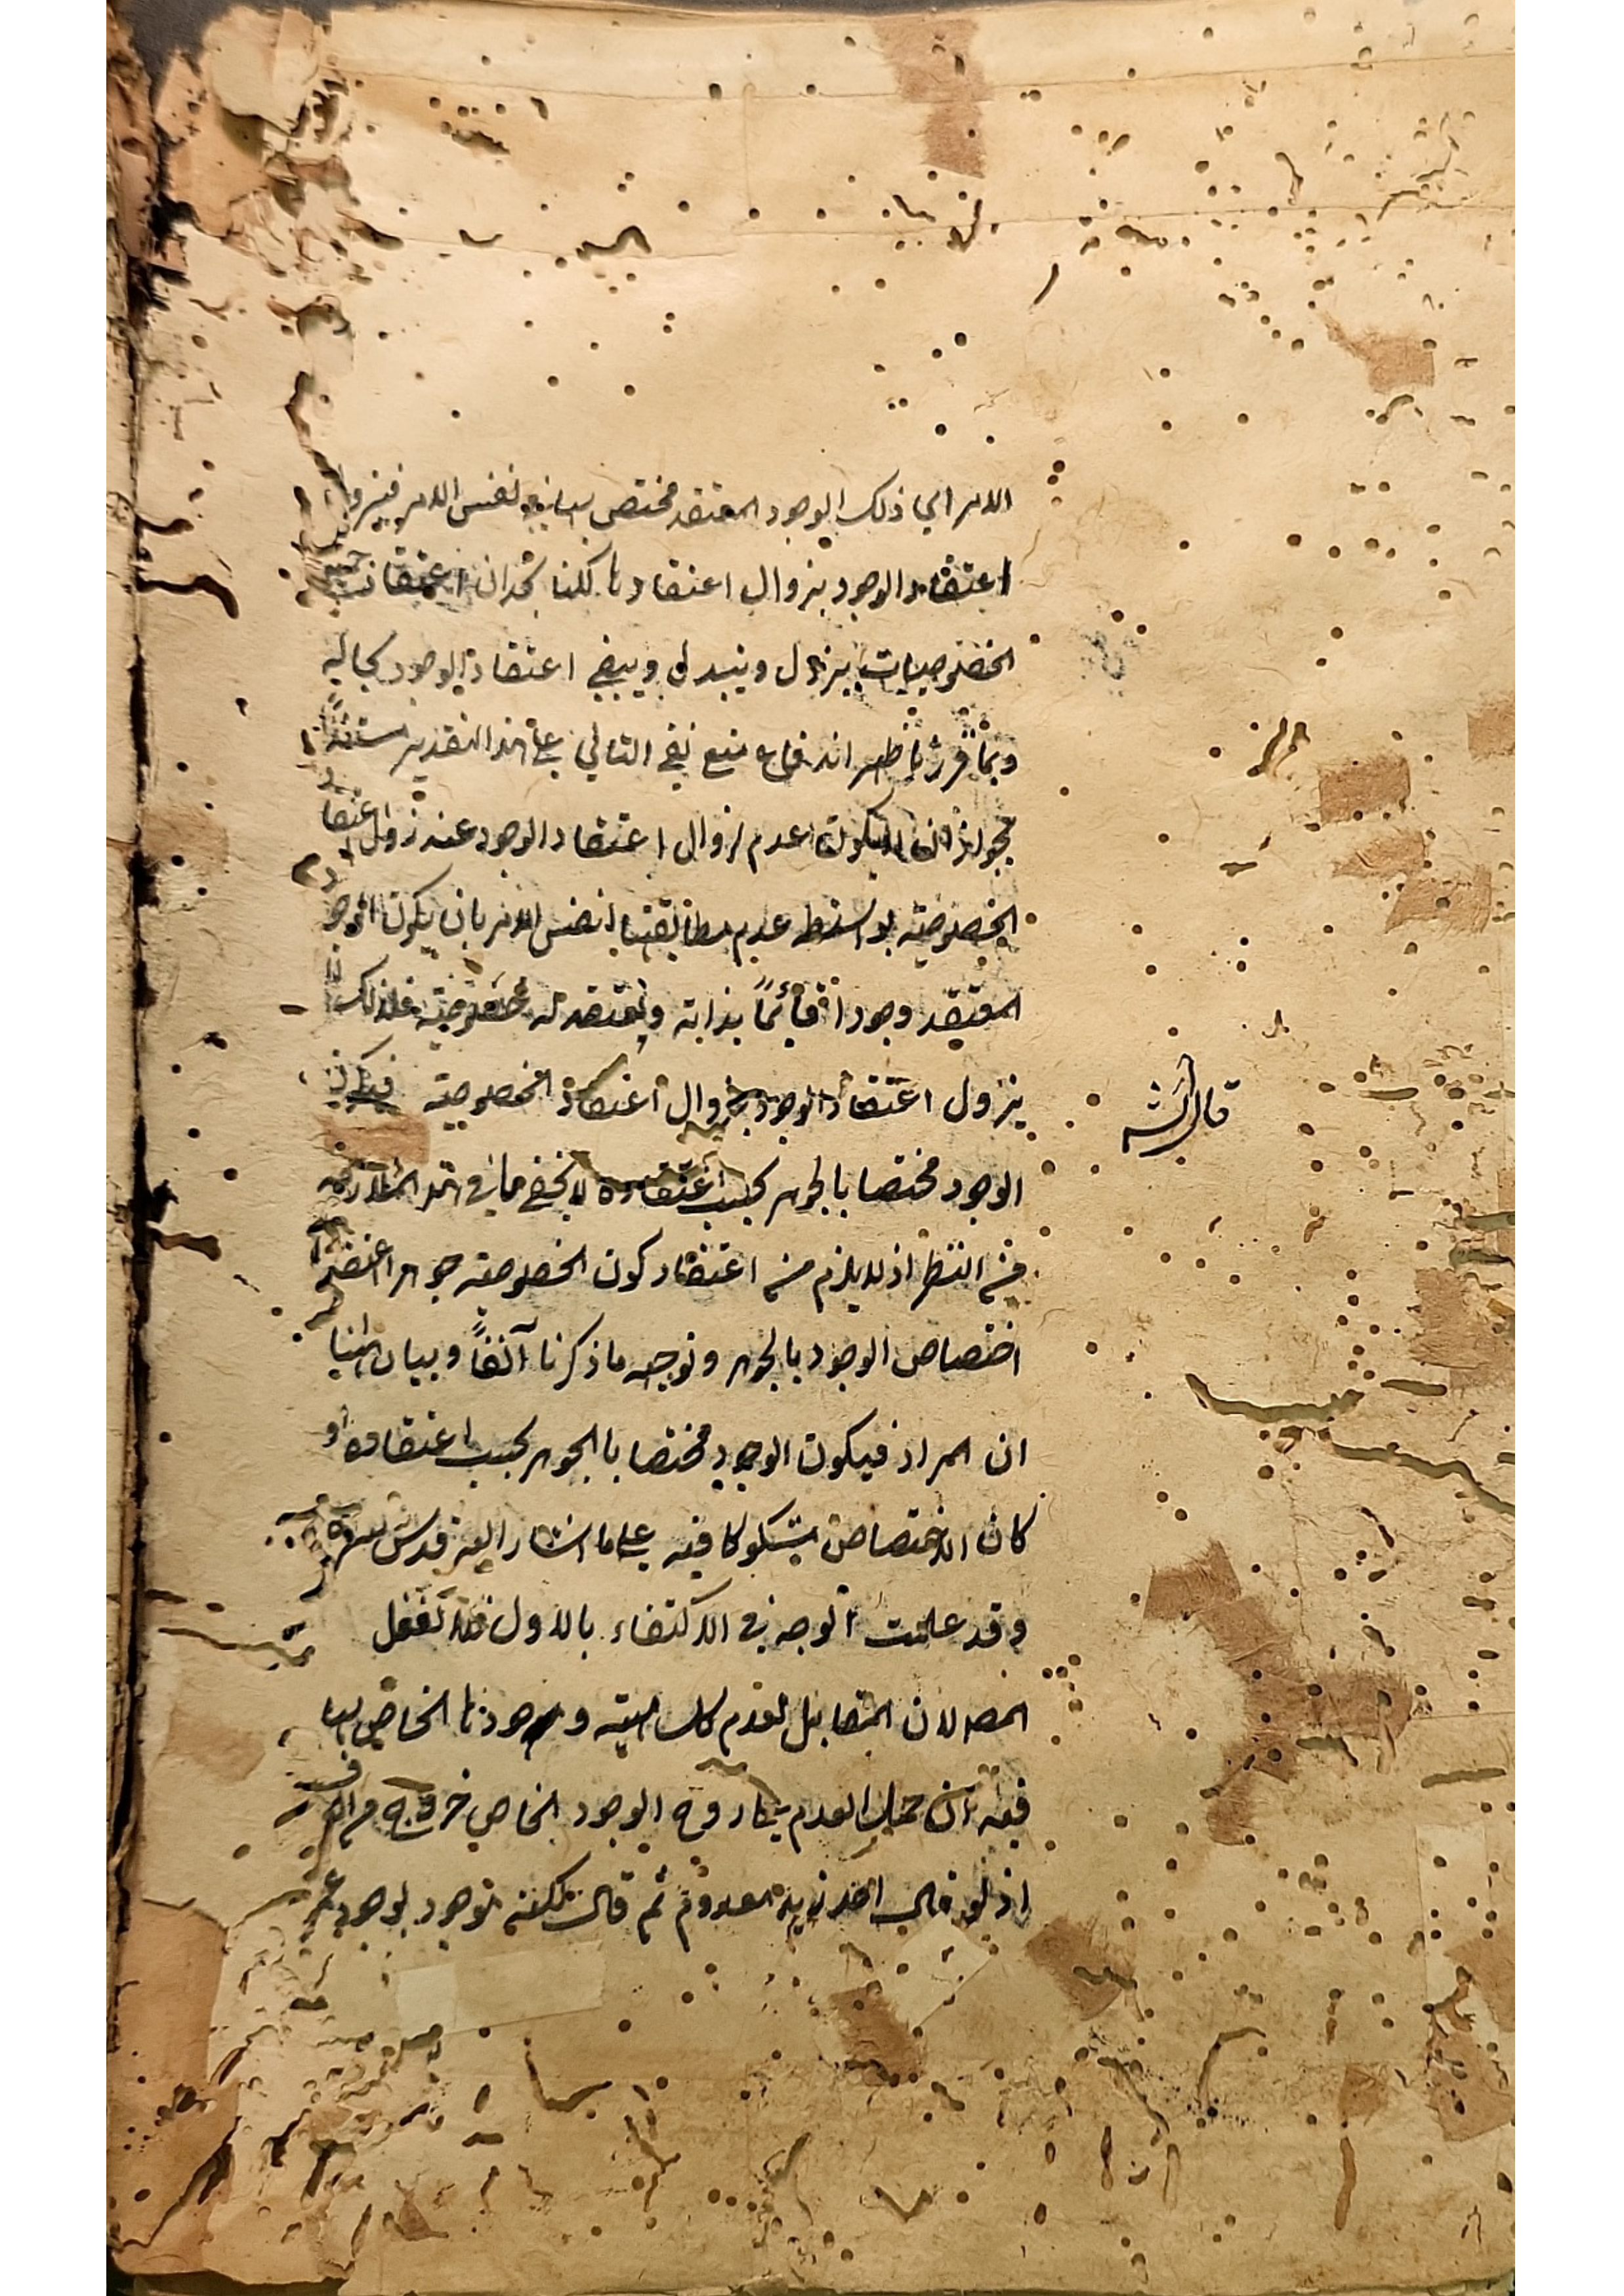 الامر الي ذلك الوجود المعتقد مختص بها في نفس الامر فيزول
اعتقاد الوجود بزوال اعتقادنا لكنا نجد ان اعتقاد
الخصوصيات يزول ويتبدل ويبقي اعتقاد الوجود بحاله
وبما قررنا ظهر اندفاع منع نفي التالي علي هذا التقدير مستندا
بجواز ان يكون عدم زوال اعتقاد الوجود عند زوال اعتقاد
الخصوصيته بواسطه عدم مطابقتها لنفس الامر بان يكون الوجود
المعتقد وجودا قائماً بذاته ويعتقد له خصوصيته فلذلك لا
يزول اعتقاد الوجود بزوال اعتقاد الخصوصيته فيكون
قال الش
الوجود مختصا بالجوهر بحسب اعتقاده لا يخفي ما في هذه الملازمه
من النظر اذ لا يلزم من اعتقاد كون الخصوصيته جوهرا اعتقاد
اختصاص الوجود بالجوهر وتوجيهه ما ذكرنا آنفاً وبيان
ان المراد فيكون الوجود مختصا بالجوهر بحسب اعتقاده او
كان الاختصاص مشكوكا فيه علي ما اشار اليه قدس سره
وقد علمت الوجه في الاكتفاء بالاول فلا تغفل
المصه لان المقابل لعدم كل مهيته وجودنا الخاص بها
فيه ان حمل العدم علي الوجود الخاص خروج
اذ لو قال احد زيد معدوم ثم قال لكنه موجود بوجود